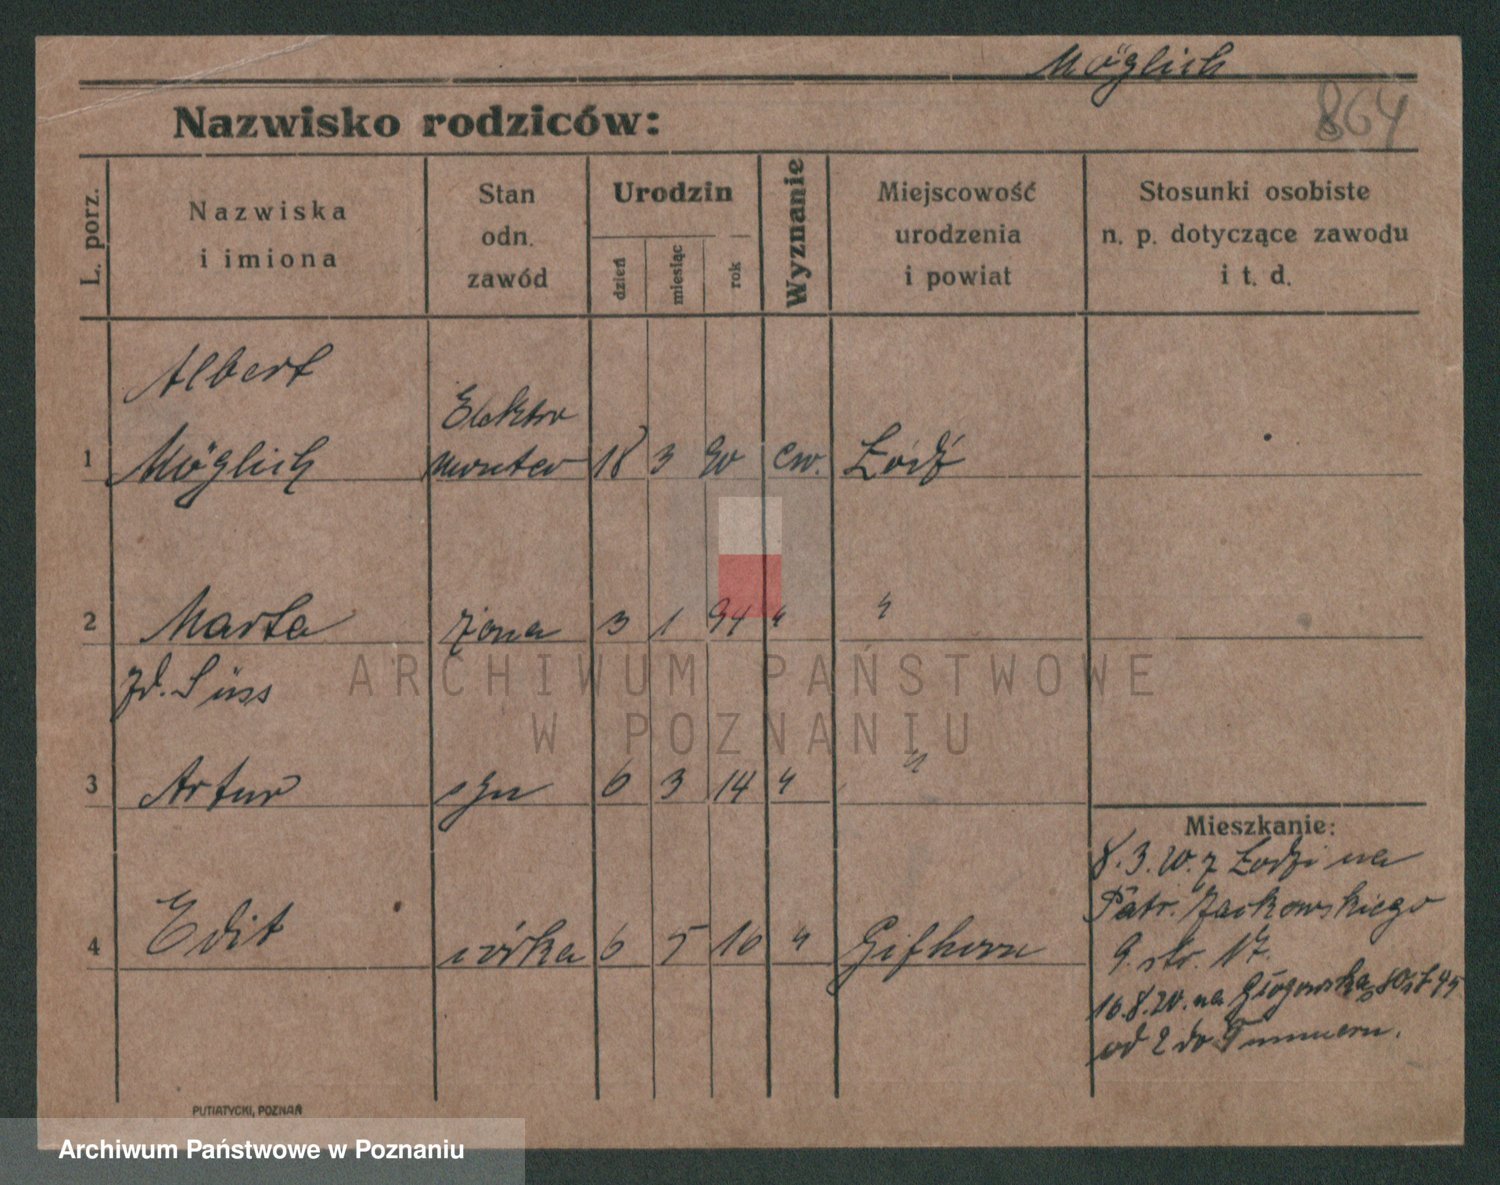 Möglich
864
Nazwisko rodziców:
L. porz.
Nazwiska
i imiona
Stan
odn.
zawód
Urodzin
dzień
miesiąc
rok
Wyznanie
Miejscowość
urodzenia
i powiat
Stosunki osobiste
n. p. dotyczące zawodu
i t. d.
Albert
Elektro
1 Möglich monter 18 3 90 ew. Łódź
2 Marta żona 3 1 94 " "
zd. Süss
3 Artur syn 6 3 14 " "
Mieszkanie:
8.3.20. z Łodzi na
Patr. Jackowskiego
4 Edit córka 6 5 16 " Gifhorn
9. str. 17.
16.8.20. na Głogowska
od 2 do
PUTIATYCKI, POZNAŃ
ARCHIWUM PAŃSTWOWE
W POZNANIU
Archiwum Państwowe w Poznaniu